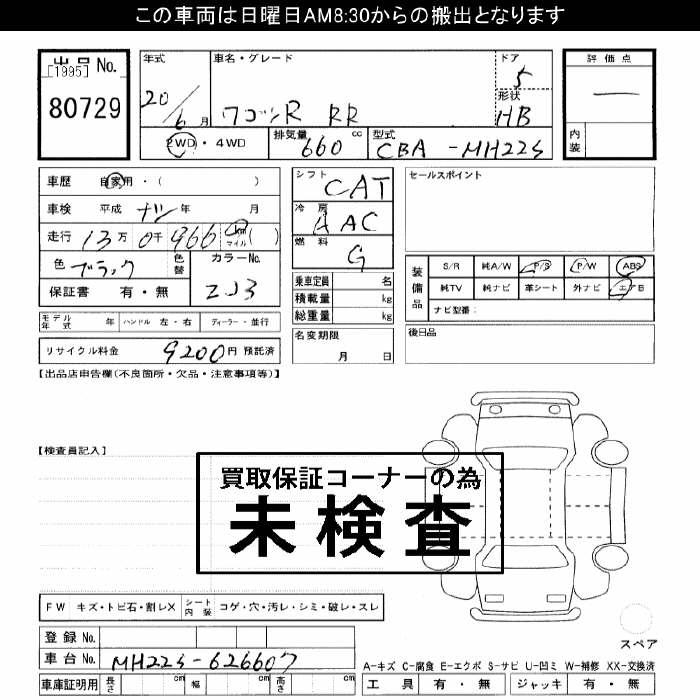 この車両は日曜日AM8:30からの搬出となります
出品 No.
[1995]
80729
年式
20/6月
車名・グレード
ワゴンR RR
ドア
5
形状
HB
評価点
—
内装
2WD・4WD
排気量
660 cc
型式
CBA-MH22S
車歴 自家用・( )
車検 平成 ナシ 年 月
走行 13万 0千 966 km マイル ( )
色 ブラック 色替
カラーNo.
ZJ3
保証書 有・無
シフト
CAT
冷房
AAC
燃料
G
乗車定員 名
積載量 kg
総重量 kg
セールスポイント
装備品
S/R 純A/W P/S P/W ABS
純TV 純ナビ 革シート 外ナビ エアB
ナビ型番:
モデル年式 年 ハンドル 左・右 ディーラー・並行
名変期限
月 日
後日品
リサイクル料金 9200円 預託済
【出品店申告欄(不良箇所・欠品・注意事項等)】
【検査員記入】
買取保証コーナーの為
未検査
FW キズ・トビ石・割レX シート内装 コゲ・穴・汚レ・シミ・破レ・スレ
登録 No.
車台 No. MH22S-626607
スペア
A-キズ C-腐食 E-エクボ S-サビ U-凹ミ W-補修 XX-交換済
車庫証明用 長さ cm 幅 cm 高さ cm
工具 有・無 ジャッキ 有・無